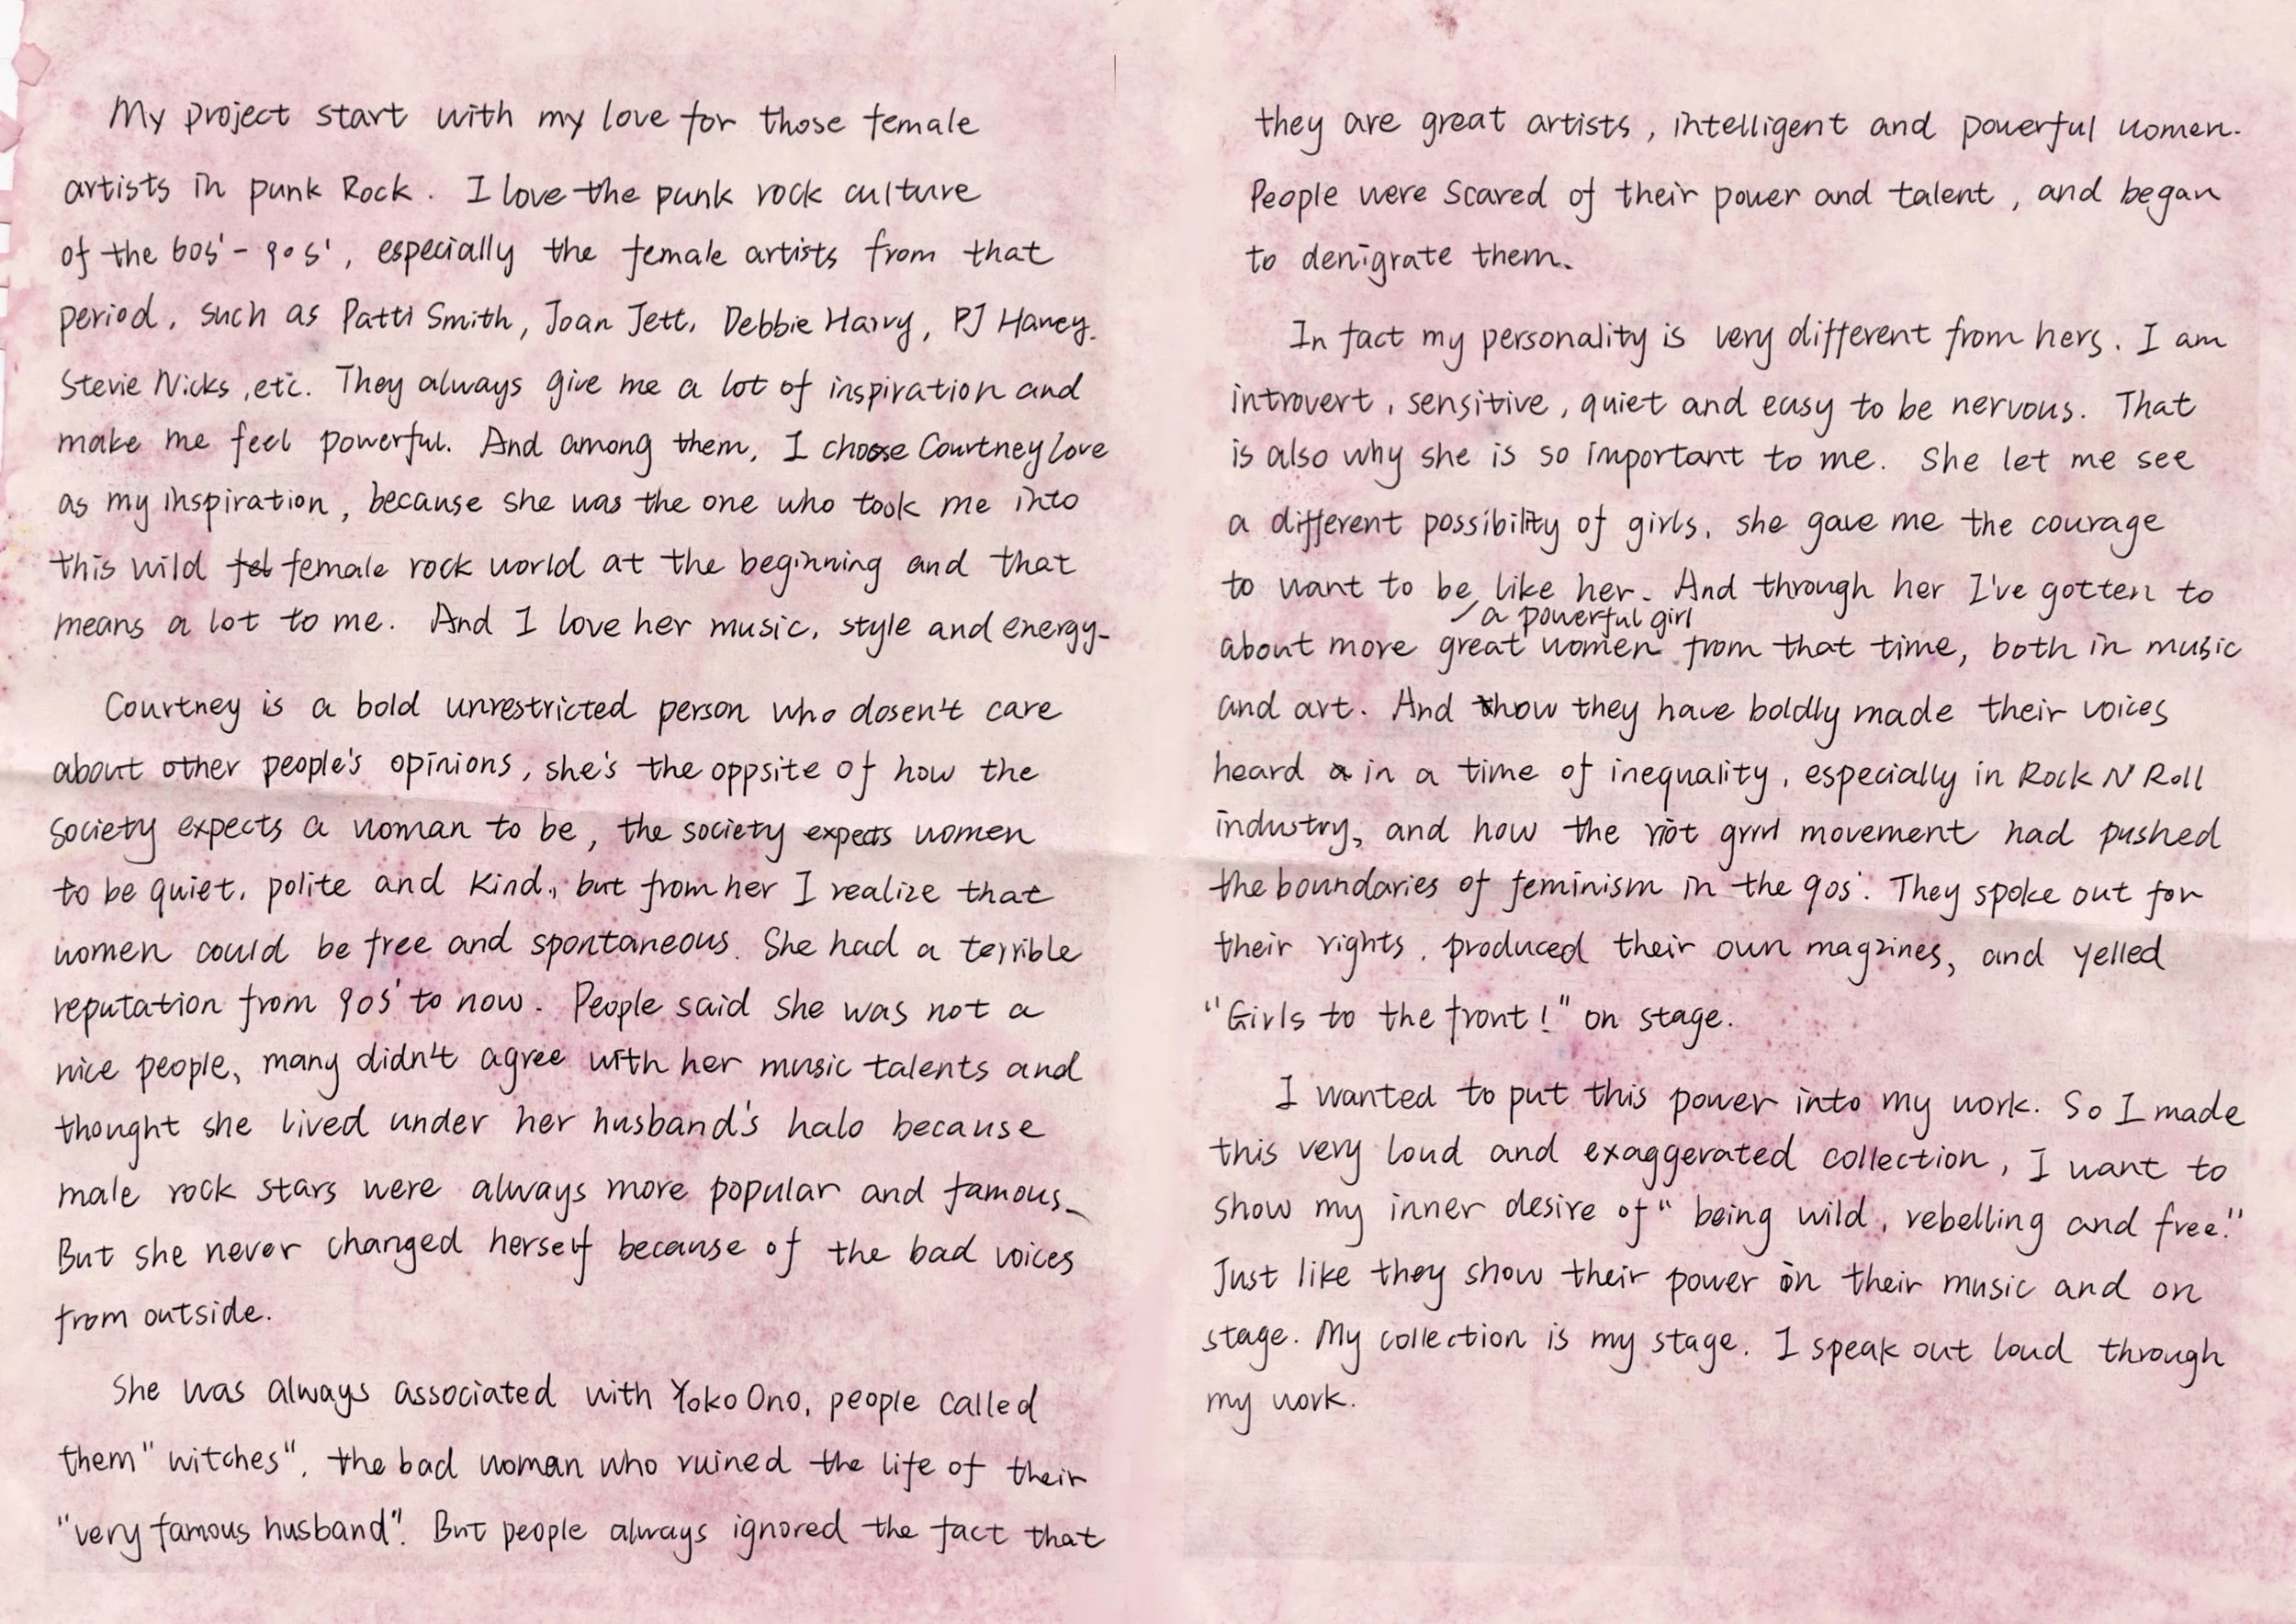 My project start with my love for those female
artists in punk Rock. I love the punk rock culture
of the 60s'-90s', especially the female artists from that
period, such as Patti Smith, Joan Jett, Debbie Harry, PJ Harvey.
Stevie Nicks, etc. They always give me a lot of inspiration and
make me feel powerful. And among them, I choose Courtney Love
as my inspiration, because she was the one who took me into
this wild fel female rock world at the beginning and that
means a lot to me. And I love her music, style and energy.
Courtney is a bold unrestricted person who dosen't care
about other people's opinions, she's the oppsite of how the
society expects a woman to be, the society expects women
to be quiet, polite and kind., but from her I realize that
women could be free and spontaneous. She had a terrible
reputation from 90s' to now. People said she was not a
nice people, many didn't agree with her music talents and
thought she lived under her husband's halo because
male rock stars were always more popular and famous.
But she never changed herself because of the bad voices
from outside.
She was always associated with Yoko Ono, people called
them "witches", the bad woman who ruined the life of their
"very famous husband". But people always ignored the fact that
they are great artists, intelligent and powerful women.
People were scared of their power and talent, and began
to denigrate them.
In fact my personality is very different from hers. I am
introvert, sensitive, quiet and easy to be nervous. That
is also why she is so important to me. She let me see
a different possibility of girls, she gave me the courage
to want to be like her. And through her I've gotten to
a powerful girl
about more great women from that time, both in music
and art. And how they have boldly made their voices
heard a in a time of inequality, especially in Rock N' Roll
industry, and how the riot grrrl movement had pushed
the boundaries of feminism in the 90s'. They spoke out for
their rights, produced their own magzines, and yelled
"Girls to the front!" on stage.
I wanted to put this power into my work. So I made
this very loud and exaggerated collection, I want to
show my inner desire of "being wild, rebelling and free."
Just like they show their power in their music and on
stage. My collection is my stage. I speak out loud through
my work.